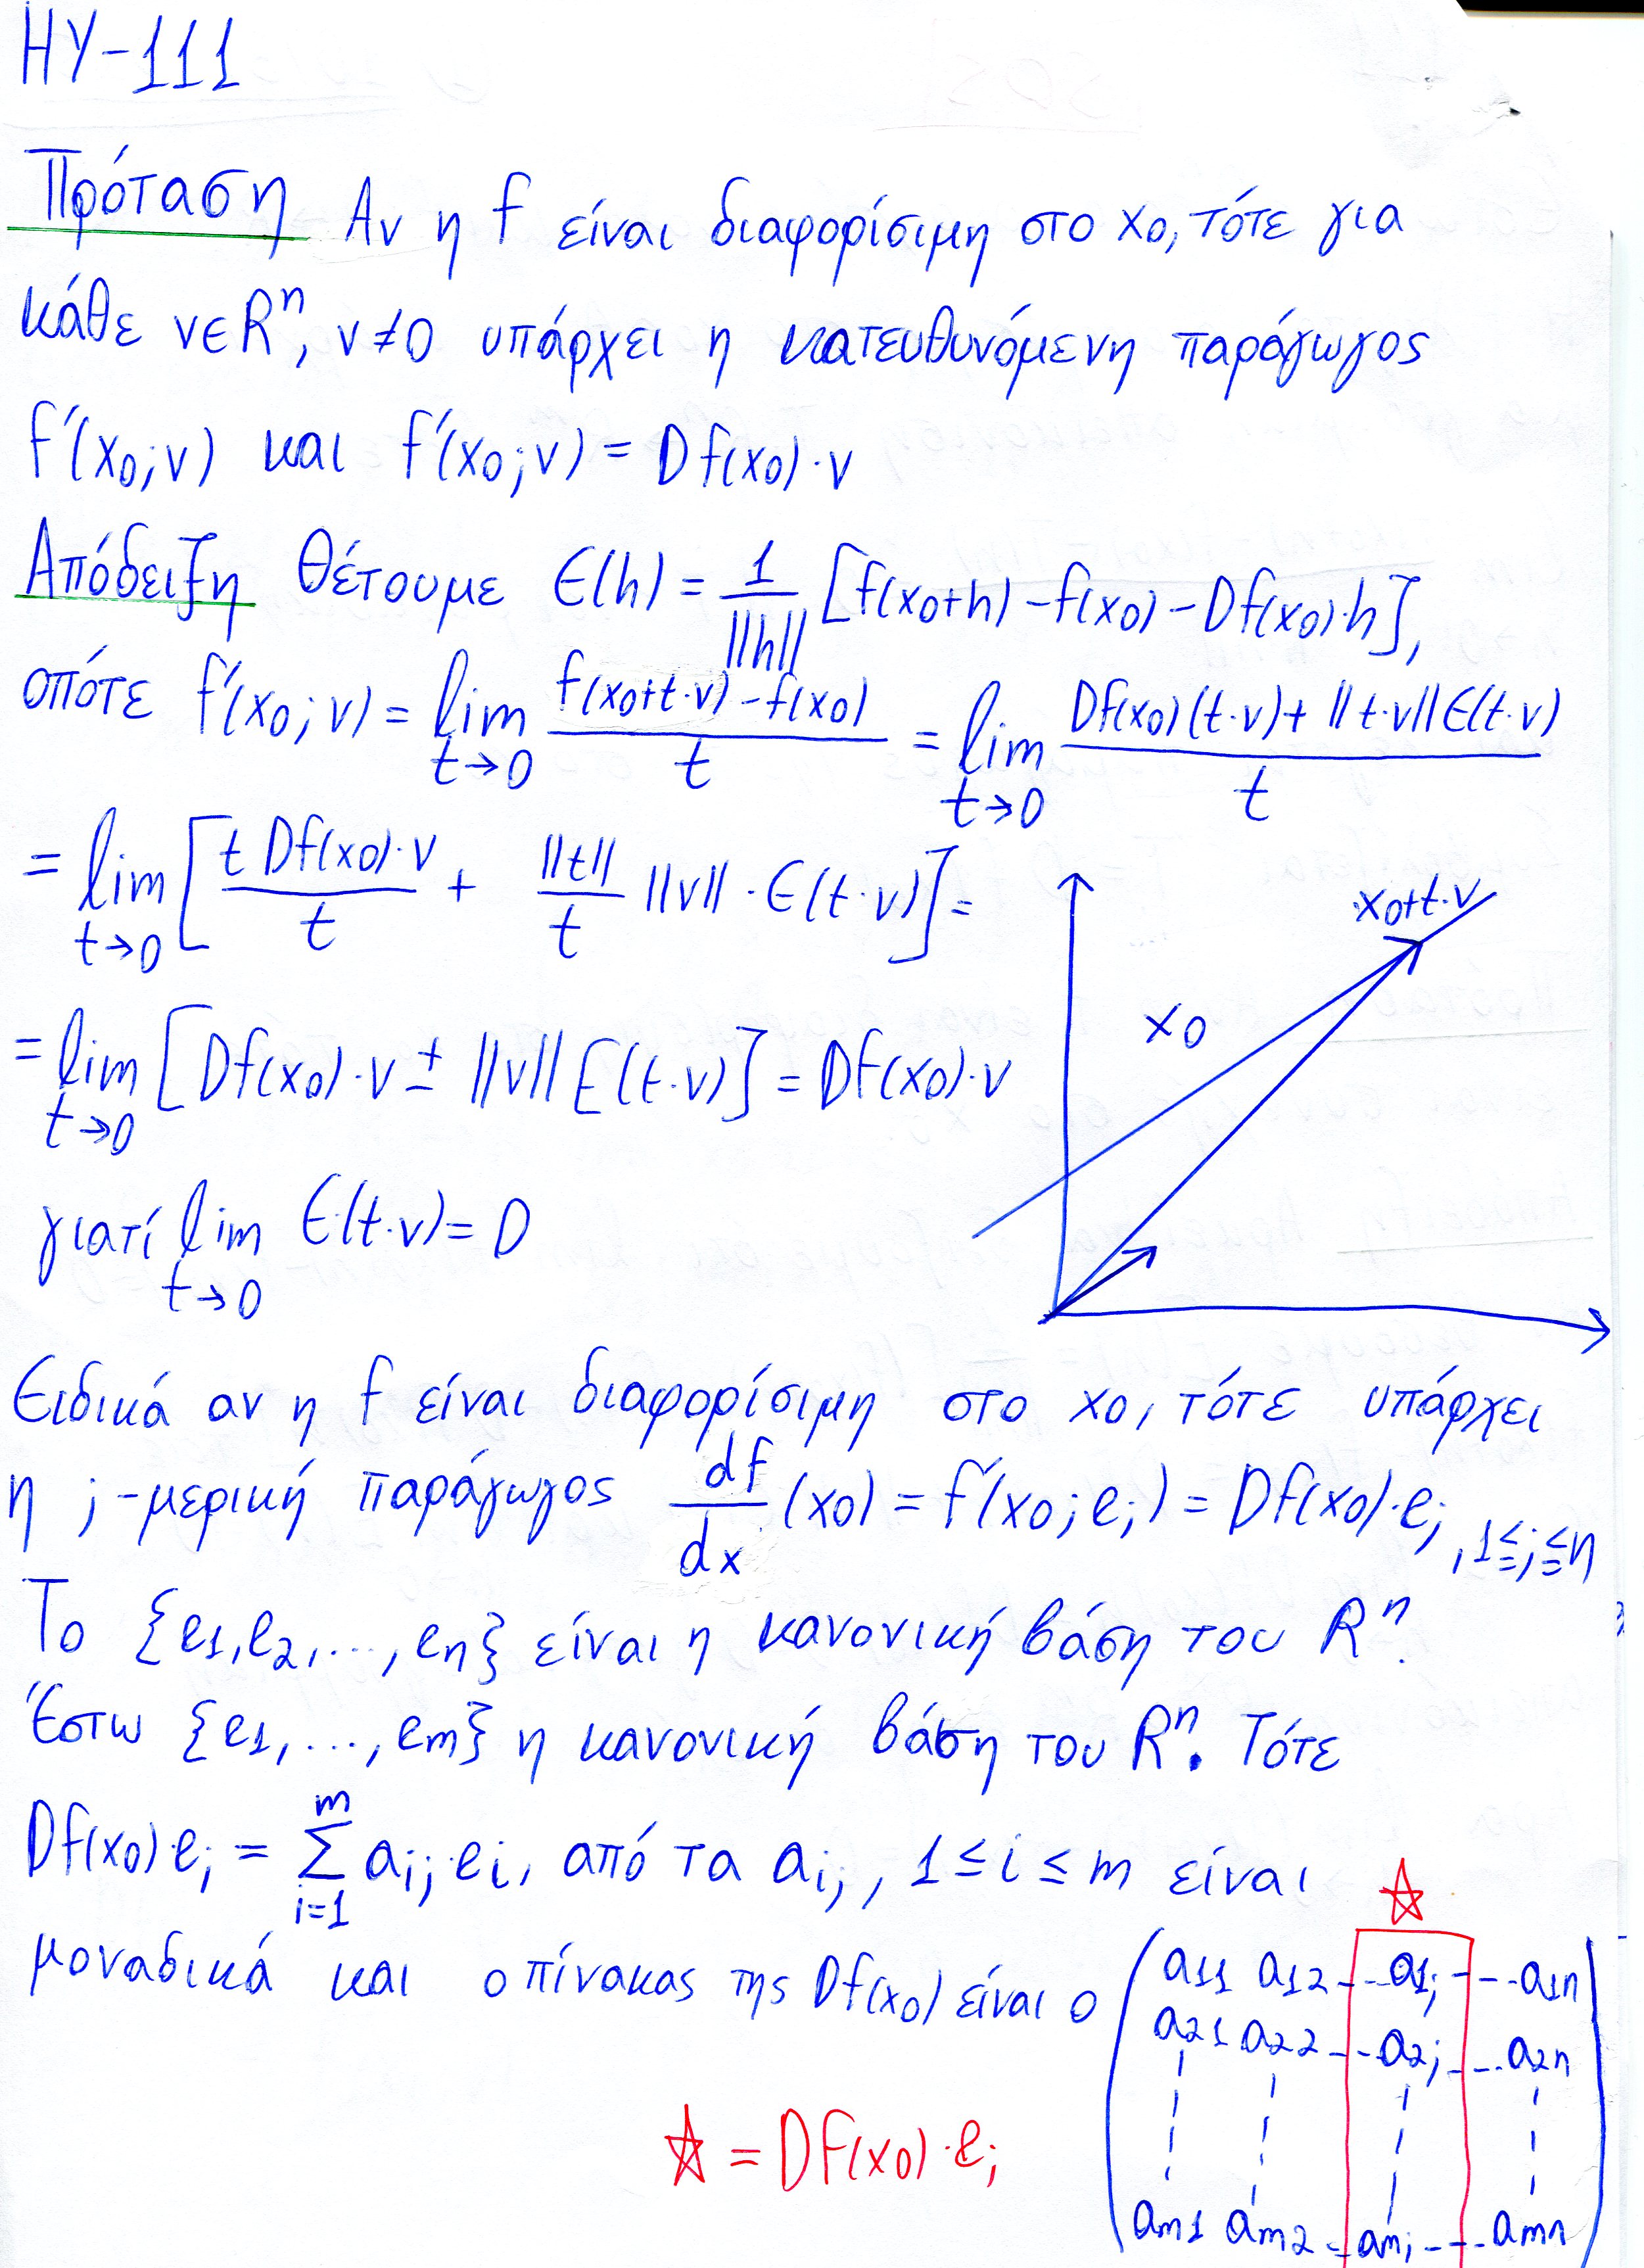 HY-111
Πρόταση Αν η f είναι διαφορίσιμη στο x0, τότε για
κάθε v∈R^n, v≠0 υπάρχει η κατευθυνόμενη παράγωγος
f'(x0;v) και f'(x0;v) = Df(x0)·v
Απόδειξη Θέτουμε ϵ(h) = 1/||h|| [f(x0+h) - f(x0) - Df(x0)·h],
οπότε f'(x0;v) = lim t→0 (f(x0+t·v) - f(x0))/t = lim t→0 (Df(x0)(t·v) + ||t·v||ϵ(t·v))/t
= lim t→0 [(t Df(x0)·v)/t + ||t||/t ||v||·ϵ(t·v)] =
= lim t→0 [Df(x0)·v ± ||v|| ϵ(t·v)] = Df(x0)·v
x0+t·v
x0
γιατί lim t→0 ϵ(t·v) = 0
Ειδικά αν η f είναι διαφορίσιμη στο x0, τότε υπάρχει
η j-μερική παράγωγος df/dx (x0) = f'(x0; ej) = Df(x0)·ej, 1≤j≤n
Το {e1,e2,...,en} είναι η κανονική βάση του R^n.
Έστω {e1,...,em} η κανονική βάση του R^n. Τότε
Df(x0)·ej = Σ i=1 m aij·ei, από τα aij, 1≤i≤m είναι
☆
μοναδικά και ο πίνακας της Df(x0) είναι ο
a11 a12 -- a1j --- a1n
a21 a22 -- a2j --- a2n
am1 am2 -- amj --- amn
☆ = Df(x0)·ej